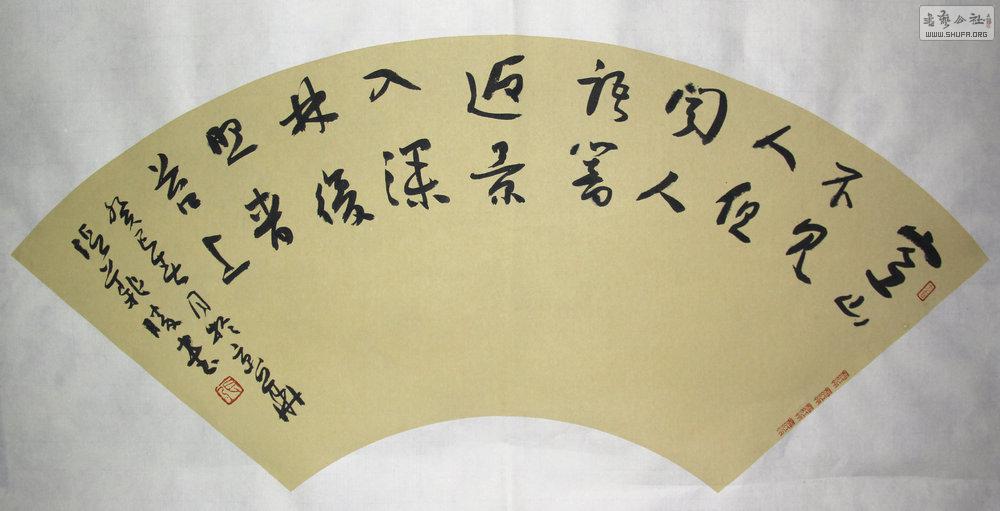 空山
不見
人但
聞人
語響
返景
入深
林復
照青
苔上
癸巳春月於
書
书艺公社
WWW.SHUFA.ORG